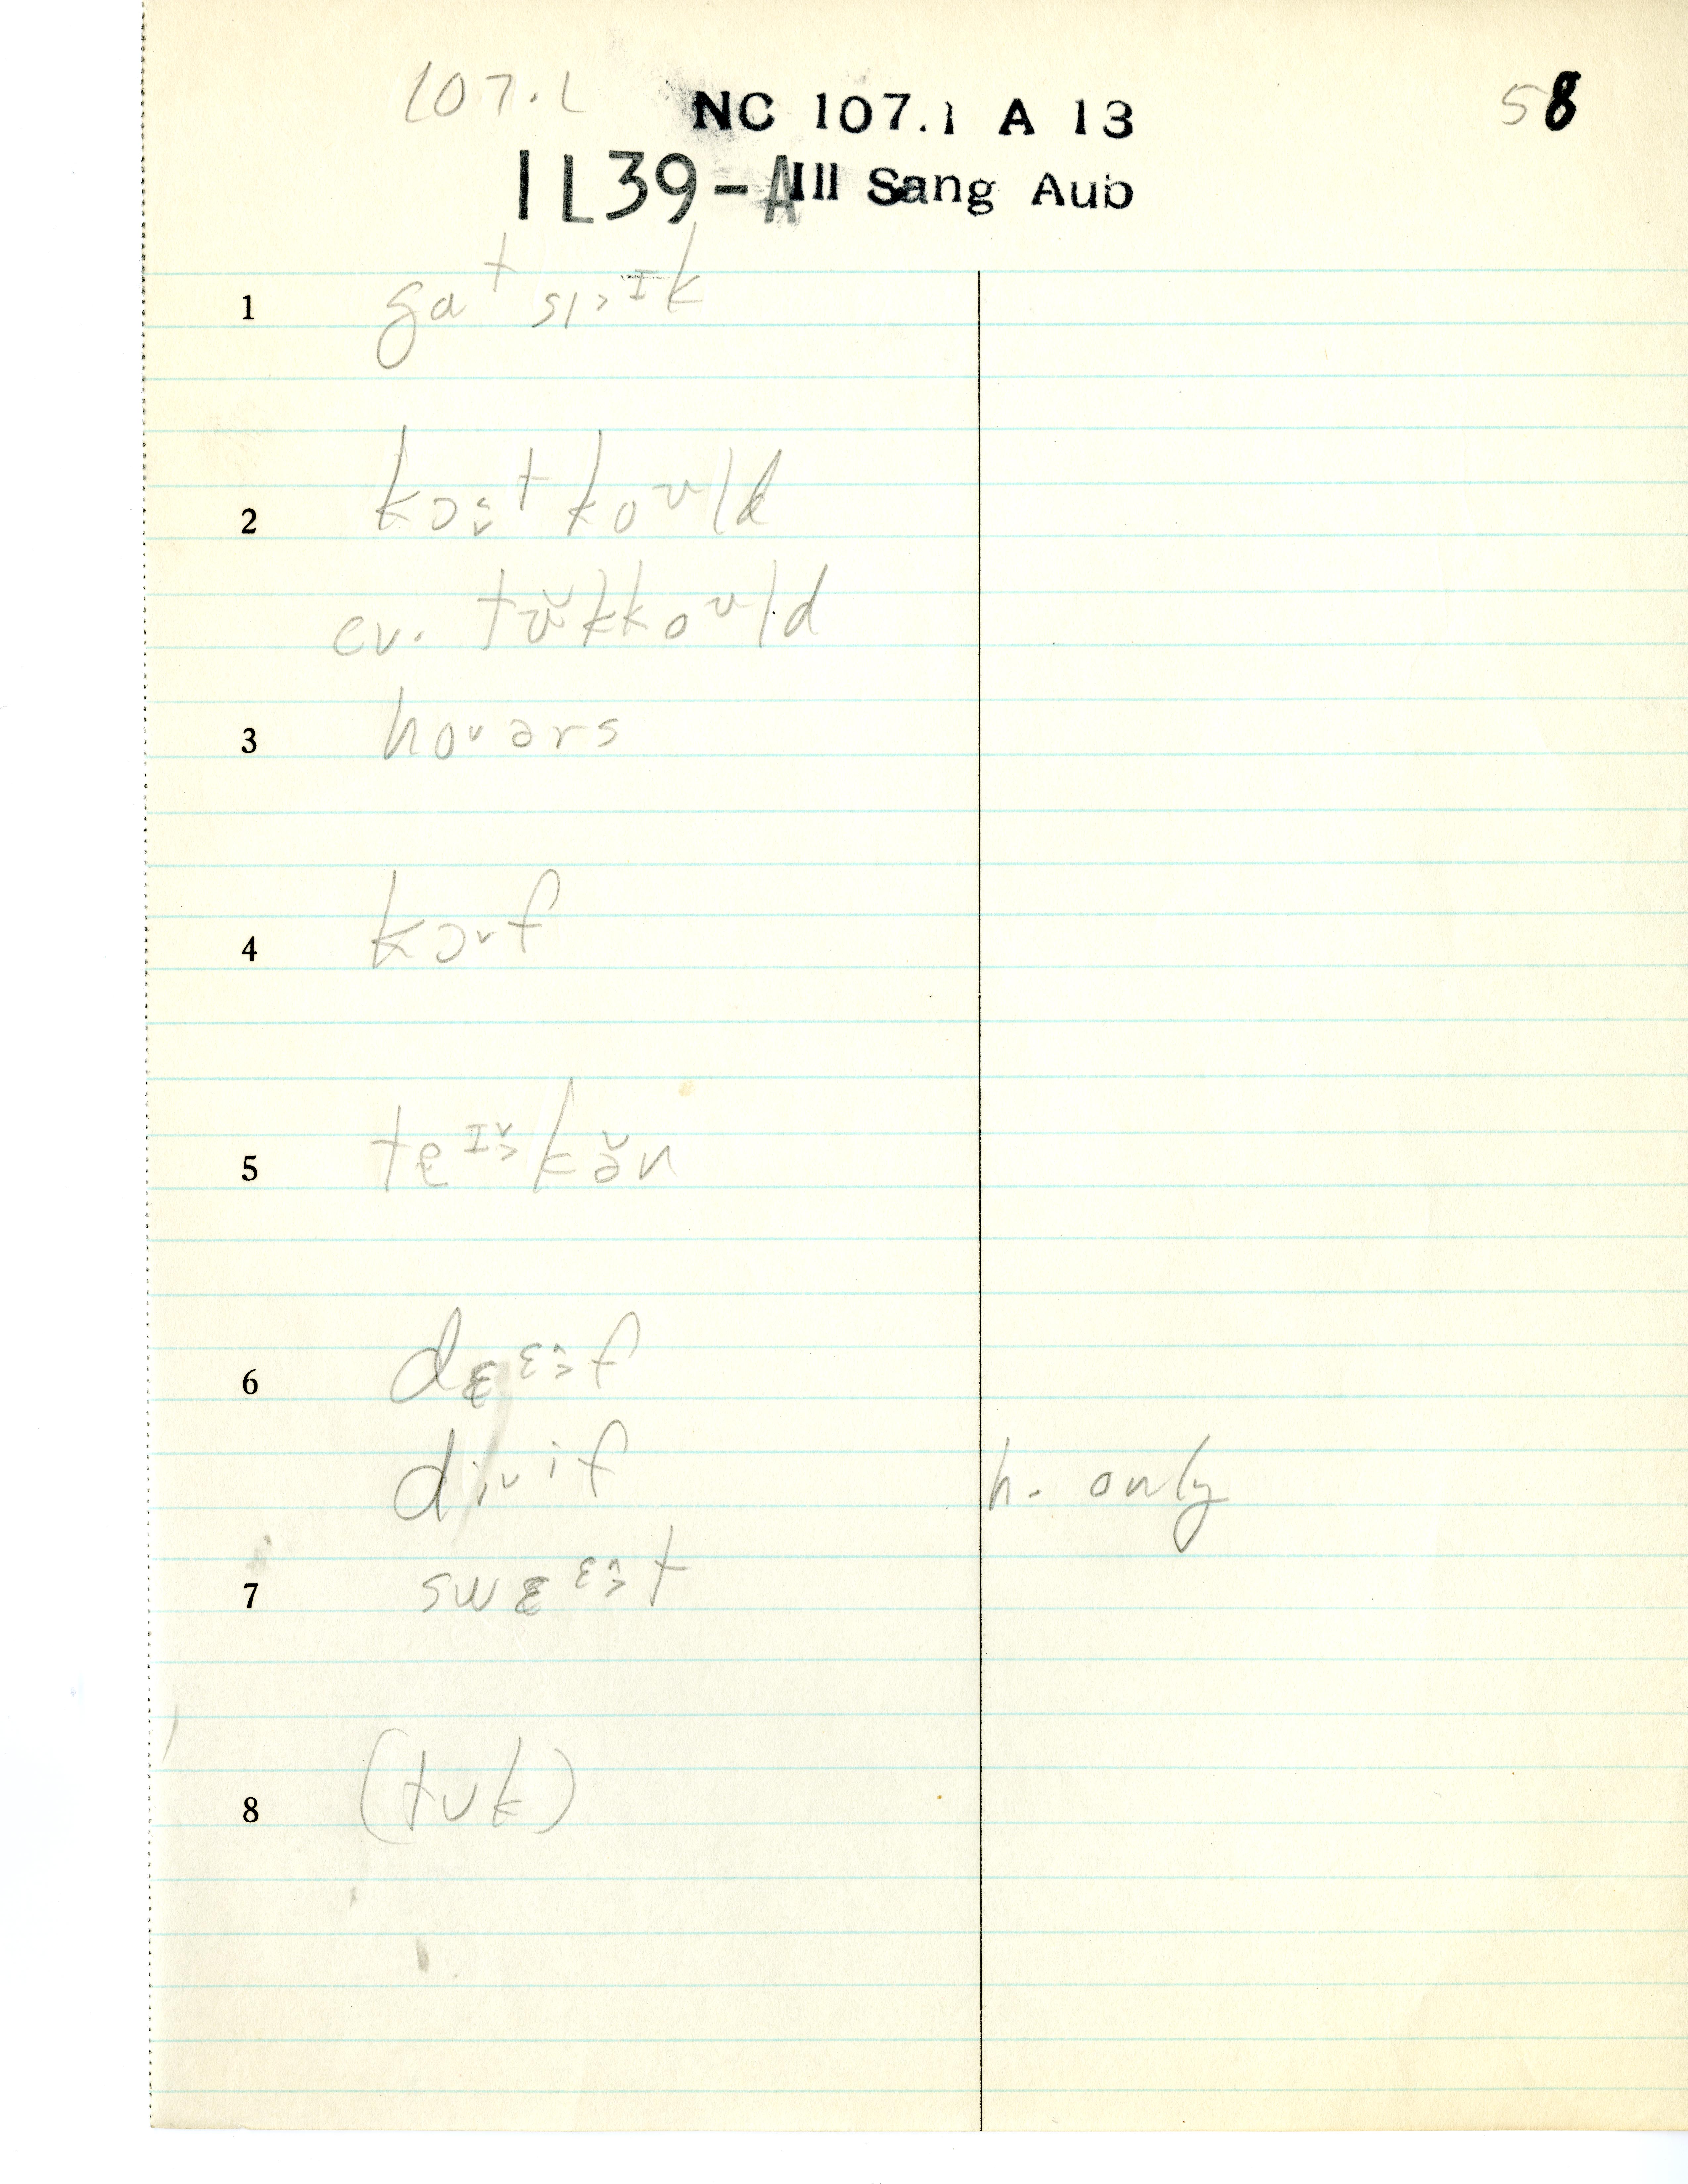 107.1
NC 107.1 A 13
58
1L39-A Ill Sang Aub
1 gat sɪ˃ᶦk
2 kɔ˔̬t koᶷld
cv. tʊ̆kkoᶷld
3 ho˅ərs
4 kɔ˅f
5 te̜ᶦ̆˃kə̆n
6 dɛ̜ᵋ˄˃f
di˅ⁱf h. only
7 swɛ̜ᵋ˄˃t
8 (tʊk)